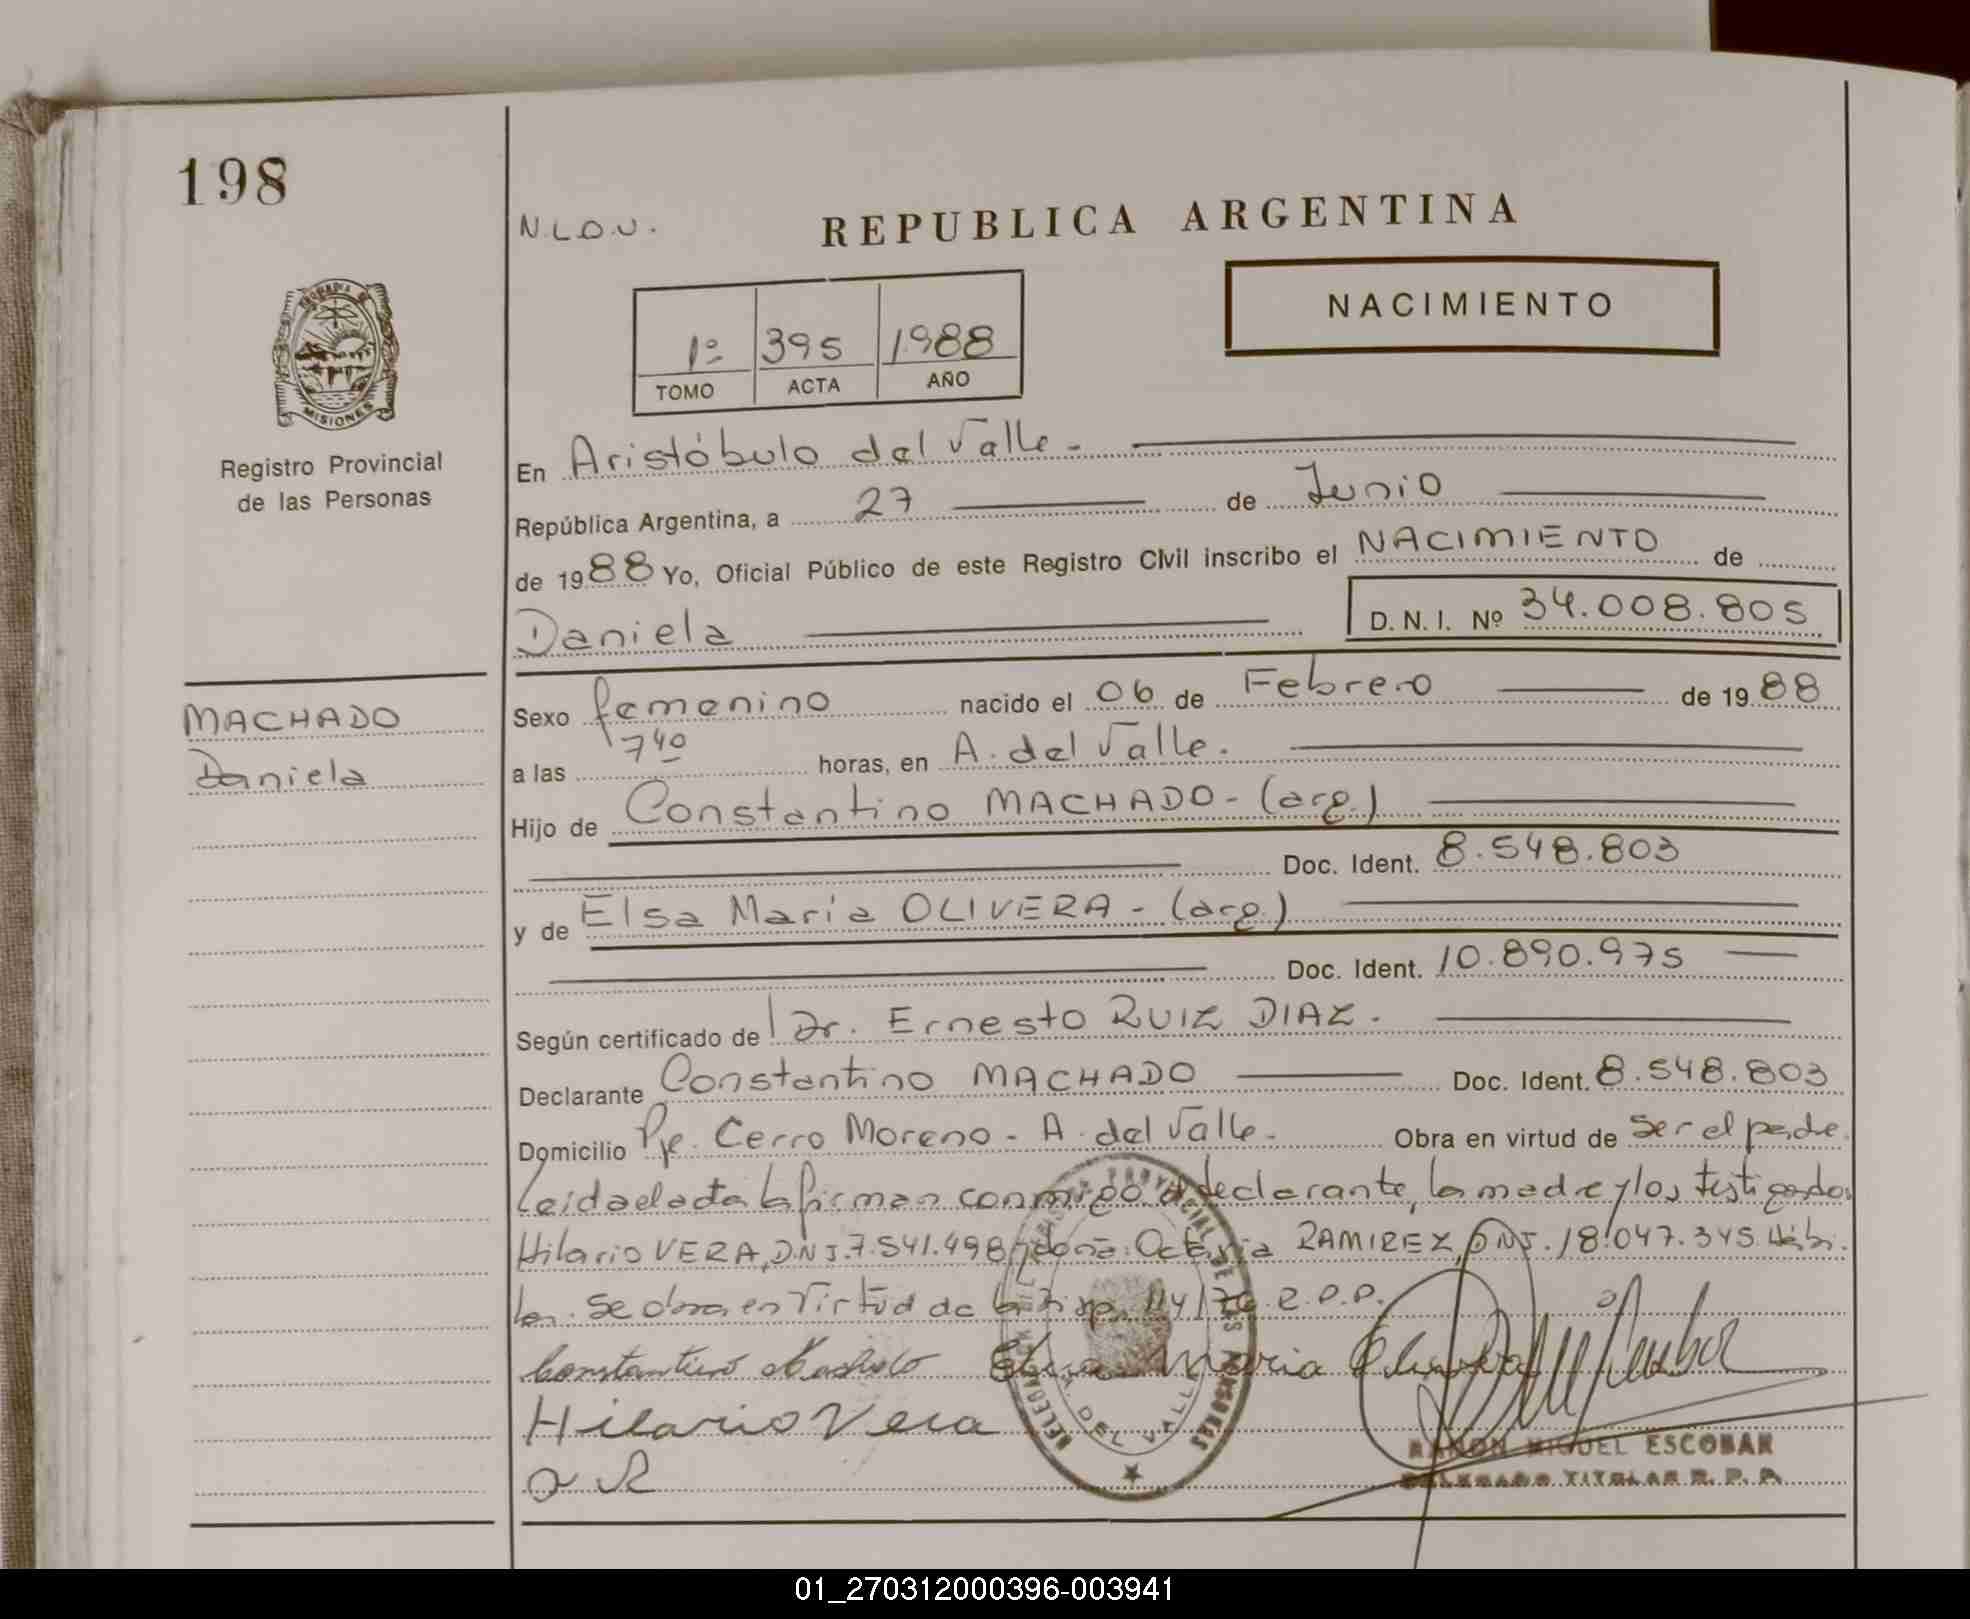 198
N.L.O.U.
REPUBLICA ARGENTINA
NACIMIENTO
1º 395 1988
TOMO ACTA AÑO
MISIONES
Registro Provincial
de las Personas
En Aristóbulo del Valle.-
República Argentina, a 27 de Junio
de 1988 Yo, Oficial Público de este Registro Civil inscribo el NACIMIENTO de
Daniela D. N. I. Nº 34.008.805
MACHADO
Daniela
Sexo femenino nacido el 06 de Febrero de 1988
a las 7 40 horas, en A. del Valle.
Hijo de Constantino MACHADO - (arg.)
Doc. Ident. 8.548.803
y de Elsa María OLIVERA - (arg.)
Doc. Ident. 10.890.975
Según certificado de Dr. Ernesto RUIZ DIAZ.
Declarante Constantino MACHADO Doc. Ident. 8.548.803
Domicilio Pje. Cerro Moreno - A. del Valle. Obra en virtud de ser el padre.
Leida el acta la firman conmigo el declarante, la madre y los testigos dn
Hilario VERA, DNI. 7.541.498 y doña Octavia RAMIREZ, DNI. 18.047.345. Hábi-
les. Se obra en virtud de la Disp. 114/76. R.P.P.
Constantino Machado María
Hilario Vera
O R
DEL VALLE
RAMON MIGUEL ESCOBAR
DELEGADO TITULAR R. P. P.
01_270312000396-003941